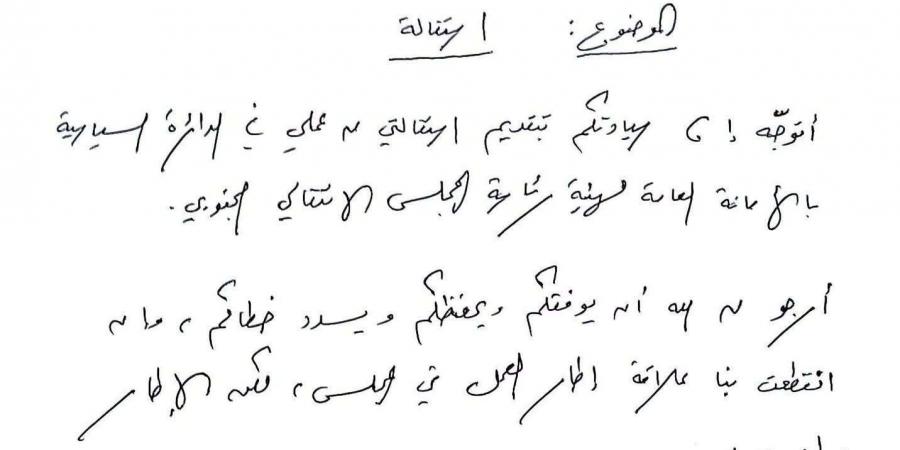 الموضوع: استقالة
أتوجّه إلى سيادتكم بتقديم استقالتي من عملي في الدائرة السياسية
بالأمانة العامة لهيئة رئاسة المجلس الانتقالي الجنوبي.
أرجو من الله أن يوفقكم ويحفظكم ويسدد خطاكم، وإن
انقطعت بنا علاقة إطار العمل في المجلس، فإن الإطار